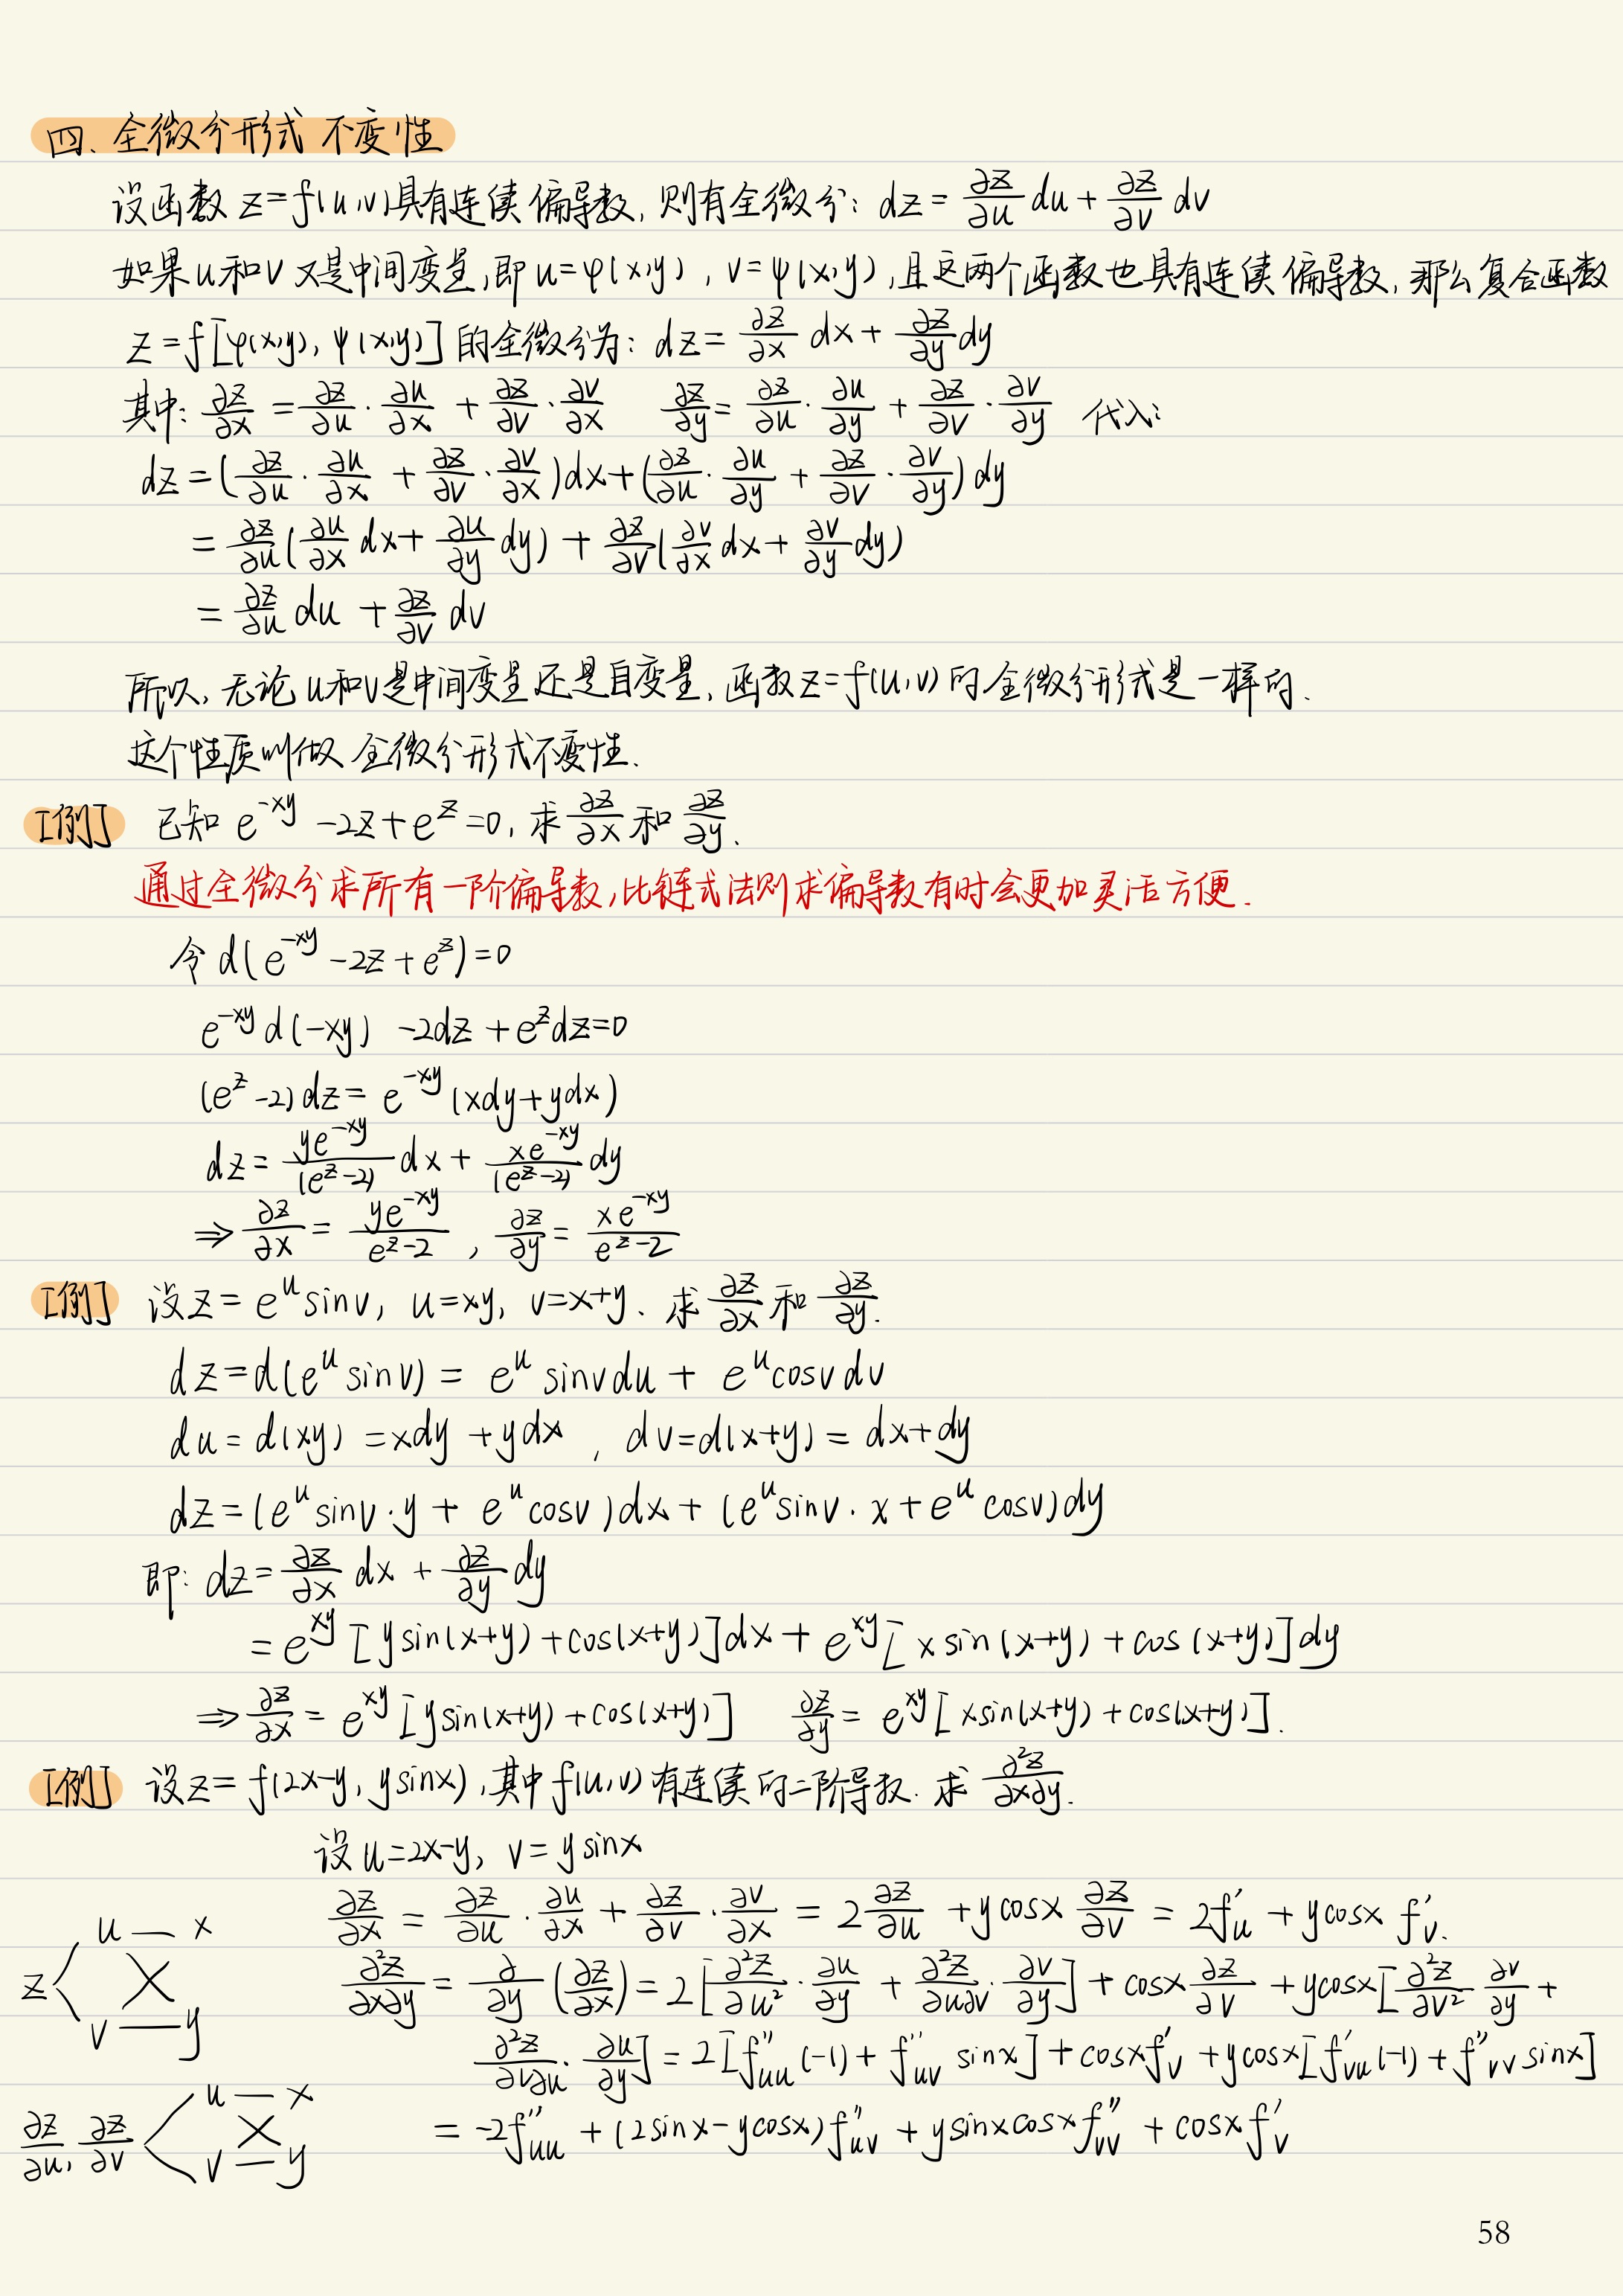 四、全微分形式不变性
设函数 z=f(u,v)具有连续偏导数, 则有全微分: dz = ∂z/∂u du + ∂z/∂v dv
如果u和v又是中间变量,即 u=φ(x,y), v=ψ(x,y),且这两个函数也具有连续偏导数, 那么复合函数
z=f[φ(x,y), ψ(x,y)] 的全微分为: dz = ∂z/∂x dx + ∂z/∂y dy
其中: ∂z/∂x = ∂z/∂u · ∂u/∂x + ∂z/∂v · ∂v/∂x  ∂z/∂y = ∂z/∂u · ∂u/∂y + ∂z/∂v · ∂v/∂y 代入:
dz = (∂z/∂u · ∂u/∂x + ∂z/∂v · ∂v/∂x)dx + (∂z/∂u · ∂u/∂y + ∂z/∂v · ∂v/∂y)dy
= ∂z/∂u(∂u/∂x dx + ∂u/∂y dy) + ∂z/∂v(∂v/∂x dx + ∂v/∂y dy)
= ∂z/∂u du + ∂z/∂v dv
所以, 无论 u和v是中间变量还是自变量, 函数z=f(u,v)的全微分形式是一样的.
这个性质叫做 全微分形式不变性.
[例] 已知 e^{-xy} -2z + e^z = 0, 求 ∂z/∂x 和 ∂z/∂y.
通过全微分求所有一阶偏导数,比链式法则求偏导数有时会更加灵活方便.
令 d(e^{-xy} -2z + e^z) = 0
e^{-xy} d(-xy) -2dz + e^z dz = 0
(e^z -2)dz = e^{-xy}(xdy+ydx)
dz = ye^{-xy}/(e^z-2) dx + xe^{-xy}/(e^z-2) dy
⇒ ∂z/∂x = ye^{-xy}/e^z-2 , ∂z/∂y = xe^{-xy}/e^z-2
[例] 设z = e^u sinv, u=xy, v=x+y. 求 ∂z/∂x 和 ∂z/∂y.
dz = d(e^u sinv) = e^u sinvdu + e^u cosvdv
du = d(xy) = xdy + ydx , dv=d(x+y) = dx+dy
dz = (e^u sinv·y + e^u cosv)dx + (e^u sinv·x + e^u cosv)dy
即: dz = ∂z/∂x dx + ∂z/∂y dy
= e^{xy}[ysin(x+y)+cos(x+y)]dx + e^{xy}[xsin(x+y)+cos(x+y)]dy
⇒ ∂z/∂x = e^{xy}[ysin(x+y)+cos(x+y)]  ∂z/∂y = e^{xy}[xsin(x+y)+cos(x+y)].
[例] 设z = f(2x-y, ysinx),其中f(u,v)有连续的二阶导数. 求 ∂²z/∂x∂y.
设 u=2x-y, v=ysinx
∂z/∂x = ∂z/∂u · ∂u/∂x + ∂z/∂v · ∂v/∂x = 2∂z/∂u + ycosx ∂z/∂v = 2f'_u + ycosx f'_v.
u — x
z < X
v — y
∂²z/∂x∂y = ∂/∂y(∂z/∂x) = 2[∂²z/∂u² · ∂u/∂y + ∂²z/∂u∂v · ∂v/∂y] + cosx ∂z/∂v + ycosx[∂²z/∂v² ∂v/∂y +
∂²z/∂v∂u · ∂u/∂y] = 2[f''_uu(-1) + f''_uv sinx] + cosxf'_v + ycosx[f'_vu(-1) + f''_vv sinx]
u — x
∂z/∂u, ∂z/∂v < X
v — y
= -2f''_uu + (2sinx-ycosx)f''_uv + ysinxcosxf''_vv + cosxf'_v
58